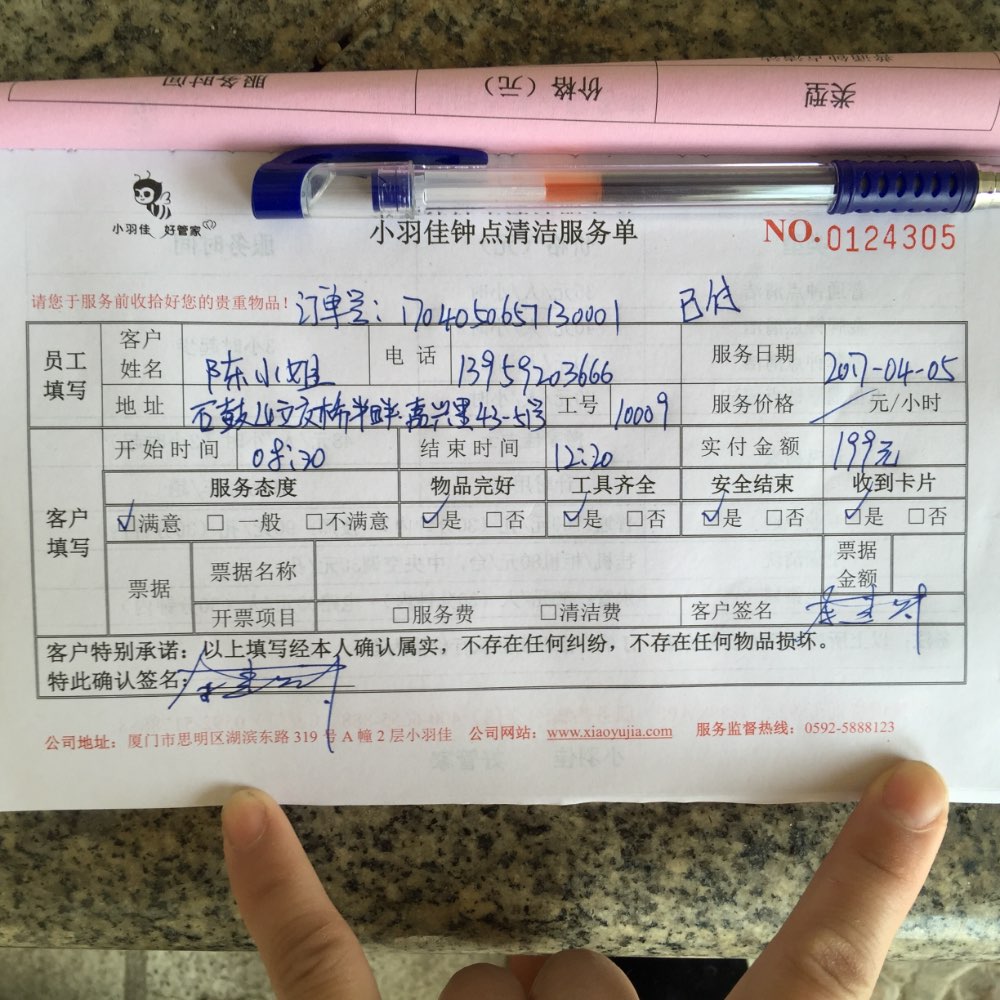 服务时间 价格（元） 类型
小羽佳 好管家
小羽佳钟点清洁服务单
NO.0124305
请您于服务前收拾好您的贵重物品！ 订单号：1704050657130001 已付
员工填写 客户姓名 陈小姐 电话 13959203666 服务日期 2017-04-05
地址 嘉兴里43-51号 工号 10009 服务价格 元/小时
客户填写 开始时间 08:20 结束时间 12:20 实付金额 199元
服务态度 物品完好 工具齐全 安全结束 收到卡片
☑满意 □一般 □不满意 ☑是 □否 ☑是 □否 ☑是 □否 ☑是 □否
票据 票据名称 票据金额
开票项目 □服务费 □清洁费 客户签名
客户特别承诺：以上填写经本人确认属实，不存在任何纠纷，不存在任何物品损坏。
特此确认签名：
公司地址：厦门市思明区湖滨东路 319 号 A 幢 2 层小羽佳 公司网站：www.xiaoyujia.com 服务监督热线：0592-5888123